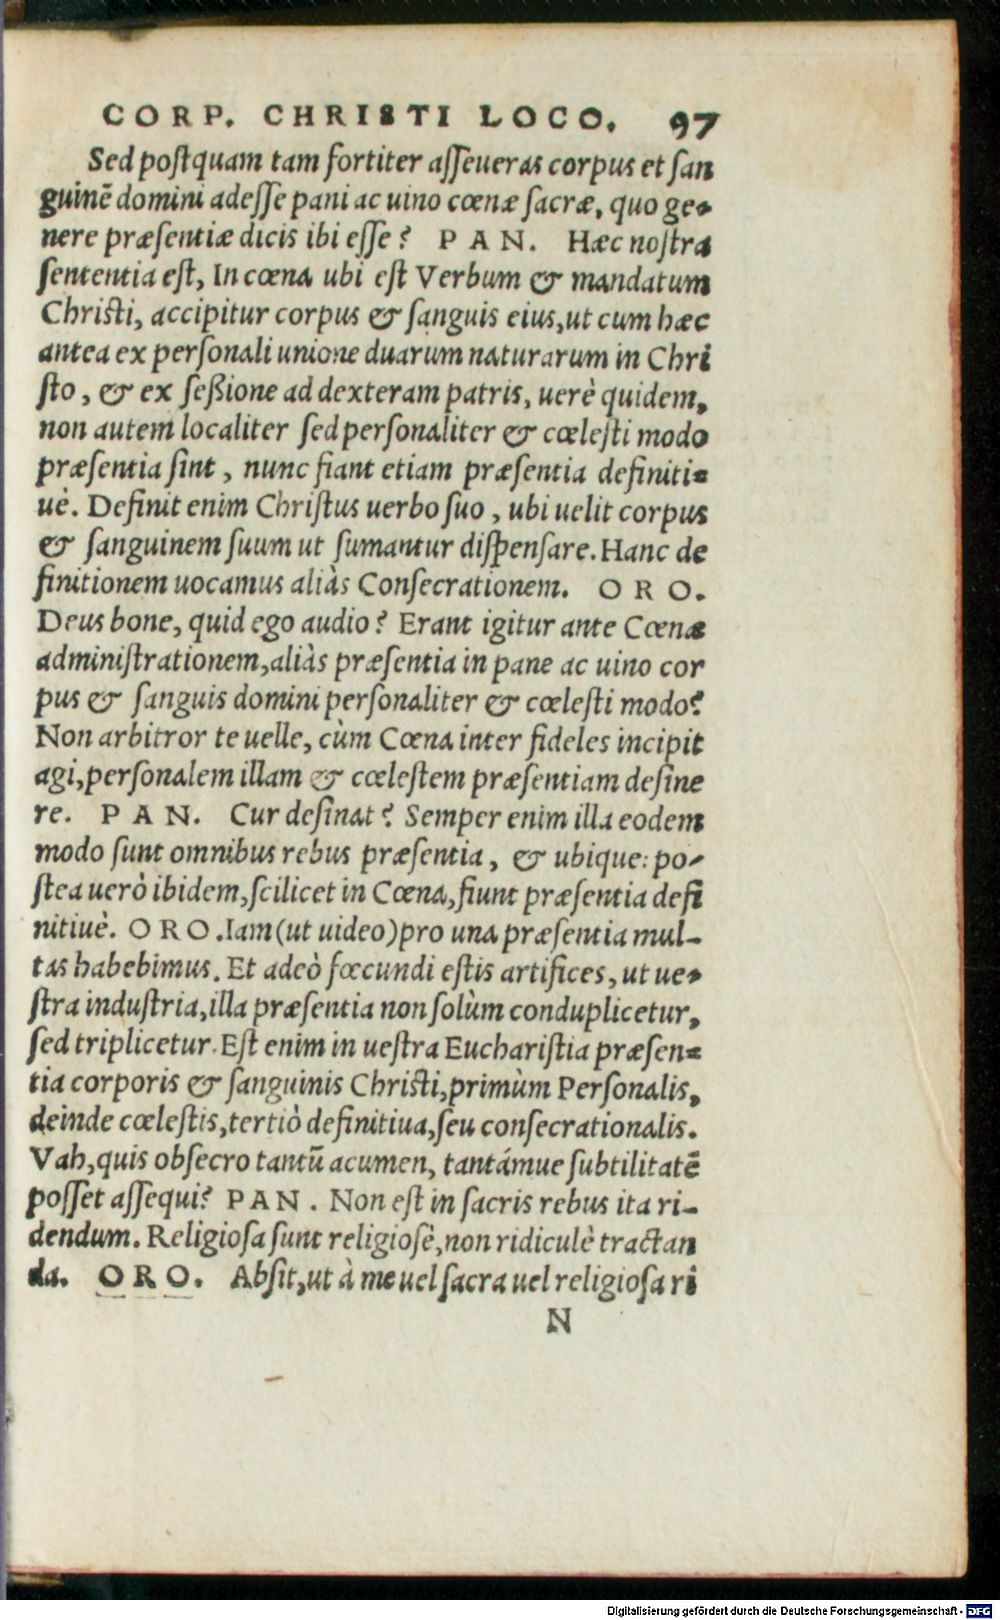 CORP. CHRISTI LOCO. 97
Sed postquam tam fortiter asseueras corpus et san
guinē domini adesse pani ac uino cœnæ sacræ, quo ge-
nere præsentiæ dicis ibi esse? PAN. Hæc nostra
sententia est, In cœna ubi est Verbum & mandatum
Christi, accipitur corpus & sanguis eius, ut cum hæc
antea ex personali unione duarum naturarum in Chri
sto, & ex seßione ad dexteram patris, uerè quidem,
non autem localiter sed personaliter & cœlesti modo
præsentia sint, nunc fiant etiam præsentia definiti-
uè. Definit enim Christus uerbo suo, ubi uelit corpus
& sanguinem suum ut sumantur dispensare. Hanc de
finitionem uocamus aliàs Consecrationem. ORO.
Deus bone, quid ego audio? Erant igitur ante Cœnæ
administrationem, aliàs præsentia in pane ac uino cor
pus & sanguis domini personaliter & cœlesti modo?
Non arbitror te uelle, cùm Cœna inter fideles incipit
agi, personalem illam & cœlestem præsentiam desine
re. PAN. Cur desinat? Semper enim illa eodem
modo sunt omnibus rebus præsentia, & ubique: po-
stea uerò ibidem, scilicet in Cœna, fiunt præsentia defi
nitiuè. ORO. Iam (ut uideo) pro una præsentia mul-
tas habebimus. Et adeò fœcundi estis artifices, ut ue-
stra industria, illa præsentia non solùm conduplicetur,
sed triplicetur. Est enim in uestra Eucharistia præsen-
tia corporis & sanguinis Christi, primùm Personalis,
deinde cœlestis, tertiò definitiua, seu consecrationalis.
Vah, quis obsecro tantū acumen, tantámue subtilitatē
posset assequi? PAN. Non est in sacris rebus ita ri-
dendum. Religiosa sunt religiosè, non ridiculè tractan
da. ORO. Absit, ut à me uel sacra uel religiosa ri
N
Digitalisierung gefördert durch die Deutsche Forschungsgemeinschaft - DFG